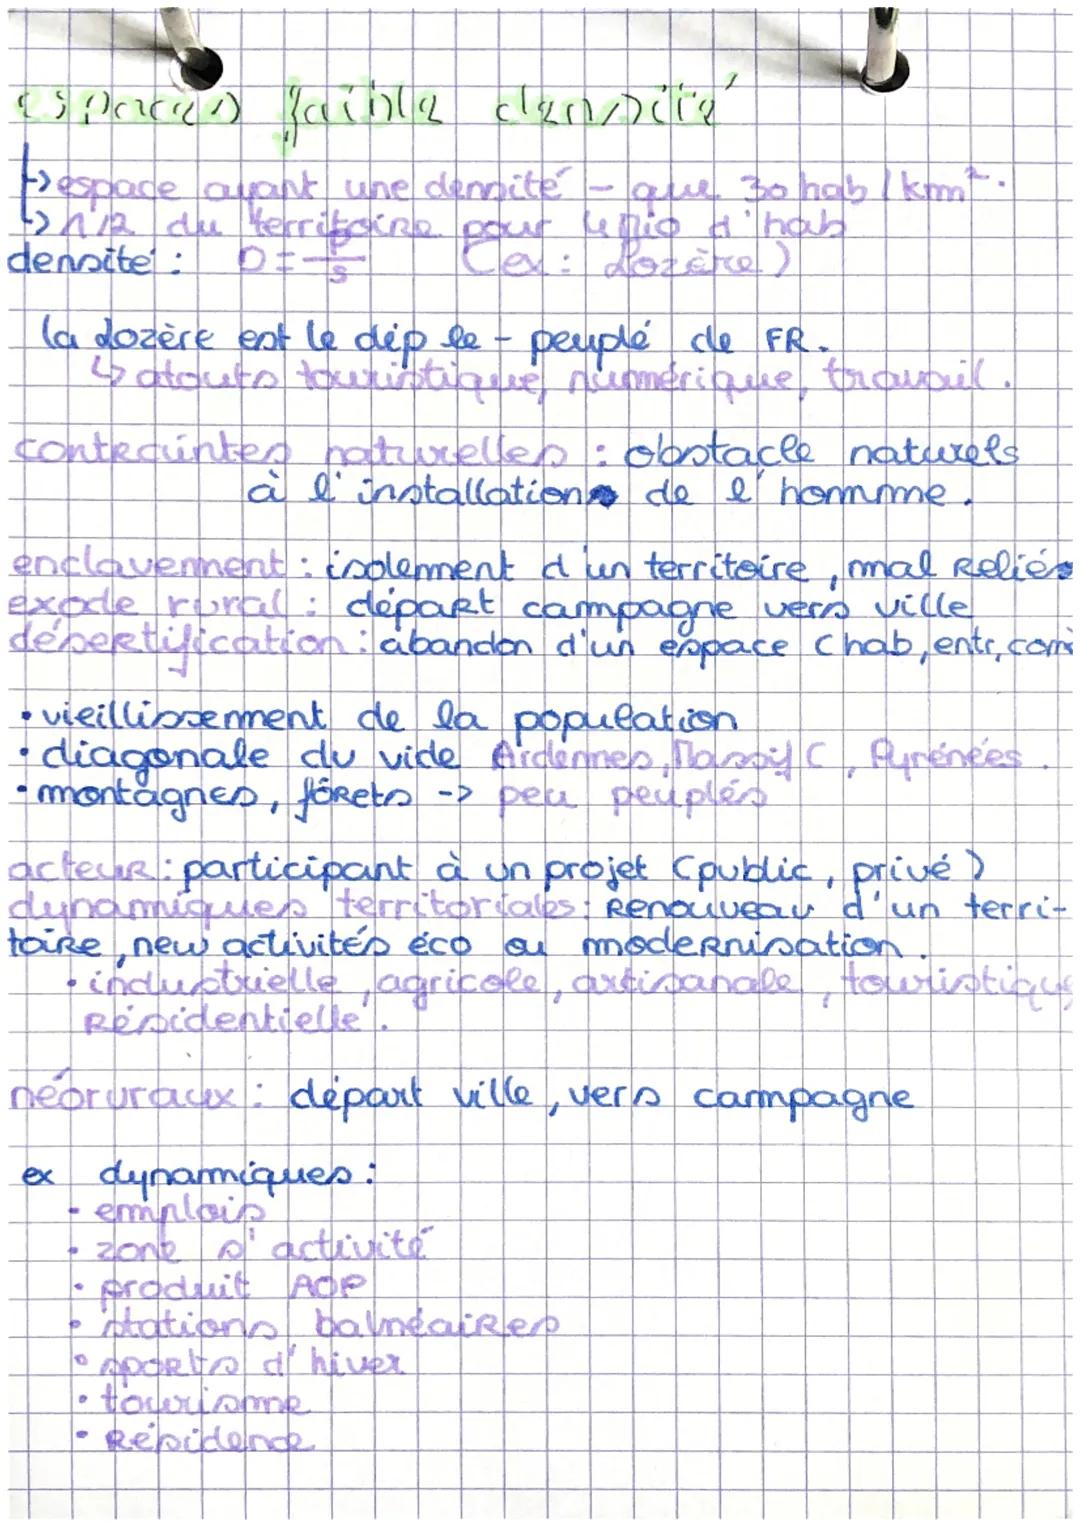 espaces faible densité
↳ espace ayant une densité - que 30 hab / km².
↳ 1/2 du territoire pour 4 Mio d'hab
densité : D = P/S (ex : Lozère)
la Lozère est le dép le - peuplé de FR.
↳ atouts touristique, numérique, travail.
contraintes naturelles : obstacle naturels
à l'installation de l'homme.
enclavement : isolement d'un territoire, mal relié
exode rural : départ campagne vers ville
désertification : abandon d'un espace (hab, entr, com
• vieillissement de la population
• diagonale du vide Ardennes, Massif C, Pyrénées.
• montagnes, fôrets -> peu peuplés
acteur : participant à un projet (public, privé)
dynamiques territoriales : Renouveau d'un terri-
toire, new activités éco ou modernisation.
• industrielle, agricole, artisanale, touristique
Résidentielle.
néoruraux : départ ville, vers campagne
ex dynamiques :
• emplois
• zone d'activité
• produit AOP
• stations balnéaires
• sports d'hiver
• tourisme
• Résidence